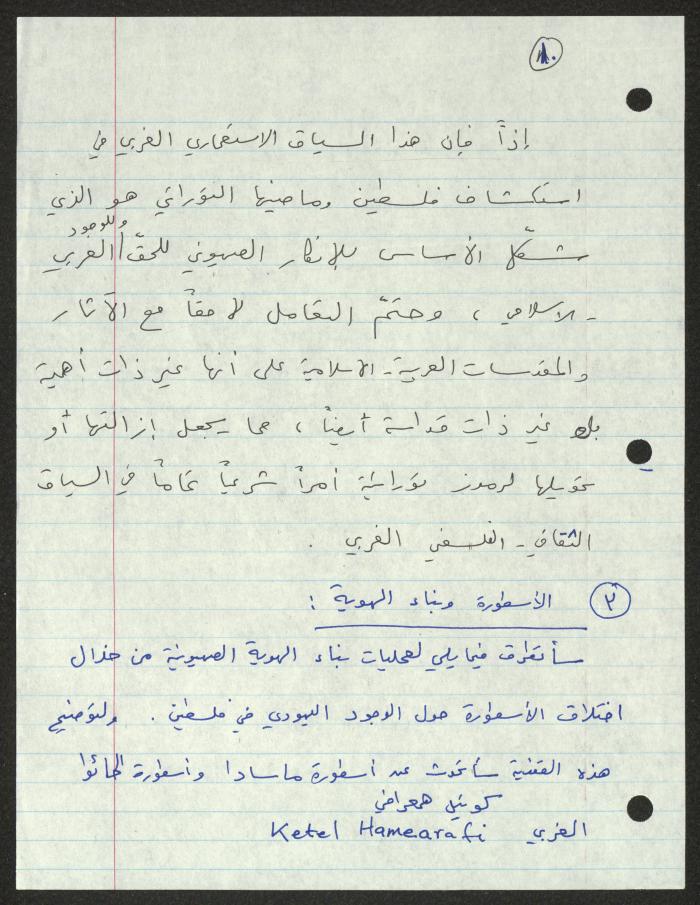 ١٠.
إذاً فإن هذا السياق الاستعماري الغربي في
استكشاف فلسطين وماضيها التوراتي هو الذي
وللوجود
شكّل الأساس للإنكار الصهيوني للحقّ العربي
- الاسلامي ، وحتّم التعامل لاحقاً مع الآثار
والمقدسات العربية - الاسلامية على أنها غير ذات أهمية
بل غير ذات قداسة أيضاً ، مما يجعل إزالتها أو
تحويلها لرموز توراتية أمراً شرعياً تماماً في السياق
الثقافي - الفلسفي الغربي .
٢ الأسطورة وبناء الهوية :
سأتطرق فيما يلي لعمليات بناء الهوية الصهيونية من خلال
اختلاق الأسطورة حول الوجود اليهودي في فلسطين . ولتوضيح
هذه القضية سأتحدث عن أسطورة ماسادا وأسطورة الحائط
كوتيل همعرافي
الغربي Ketel Hamearafi